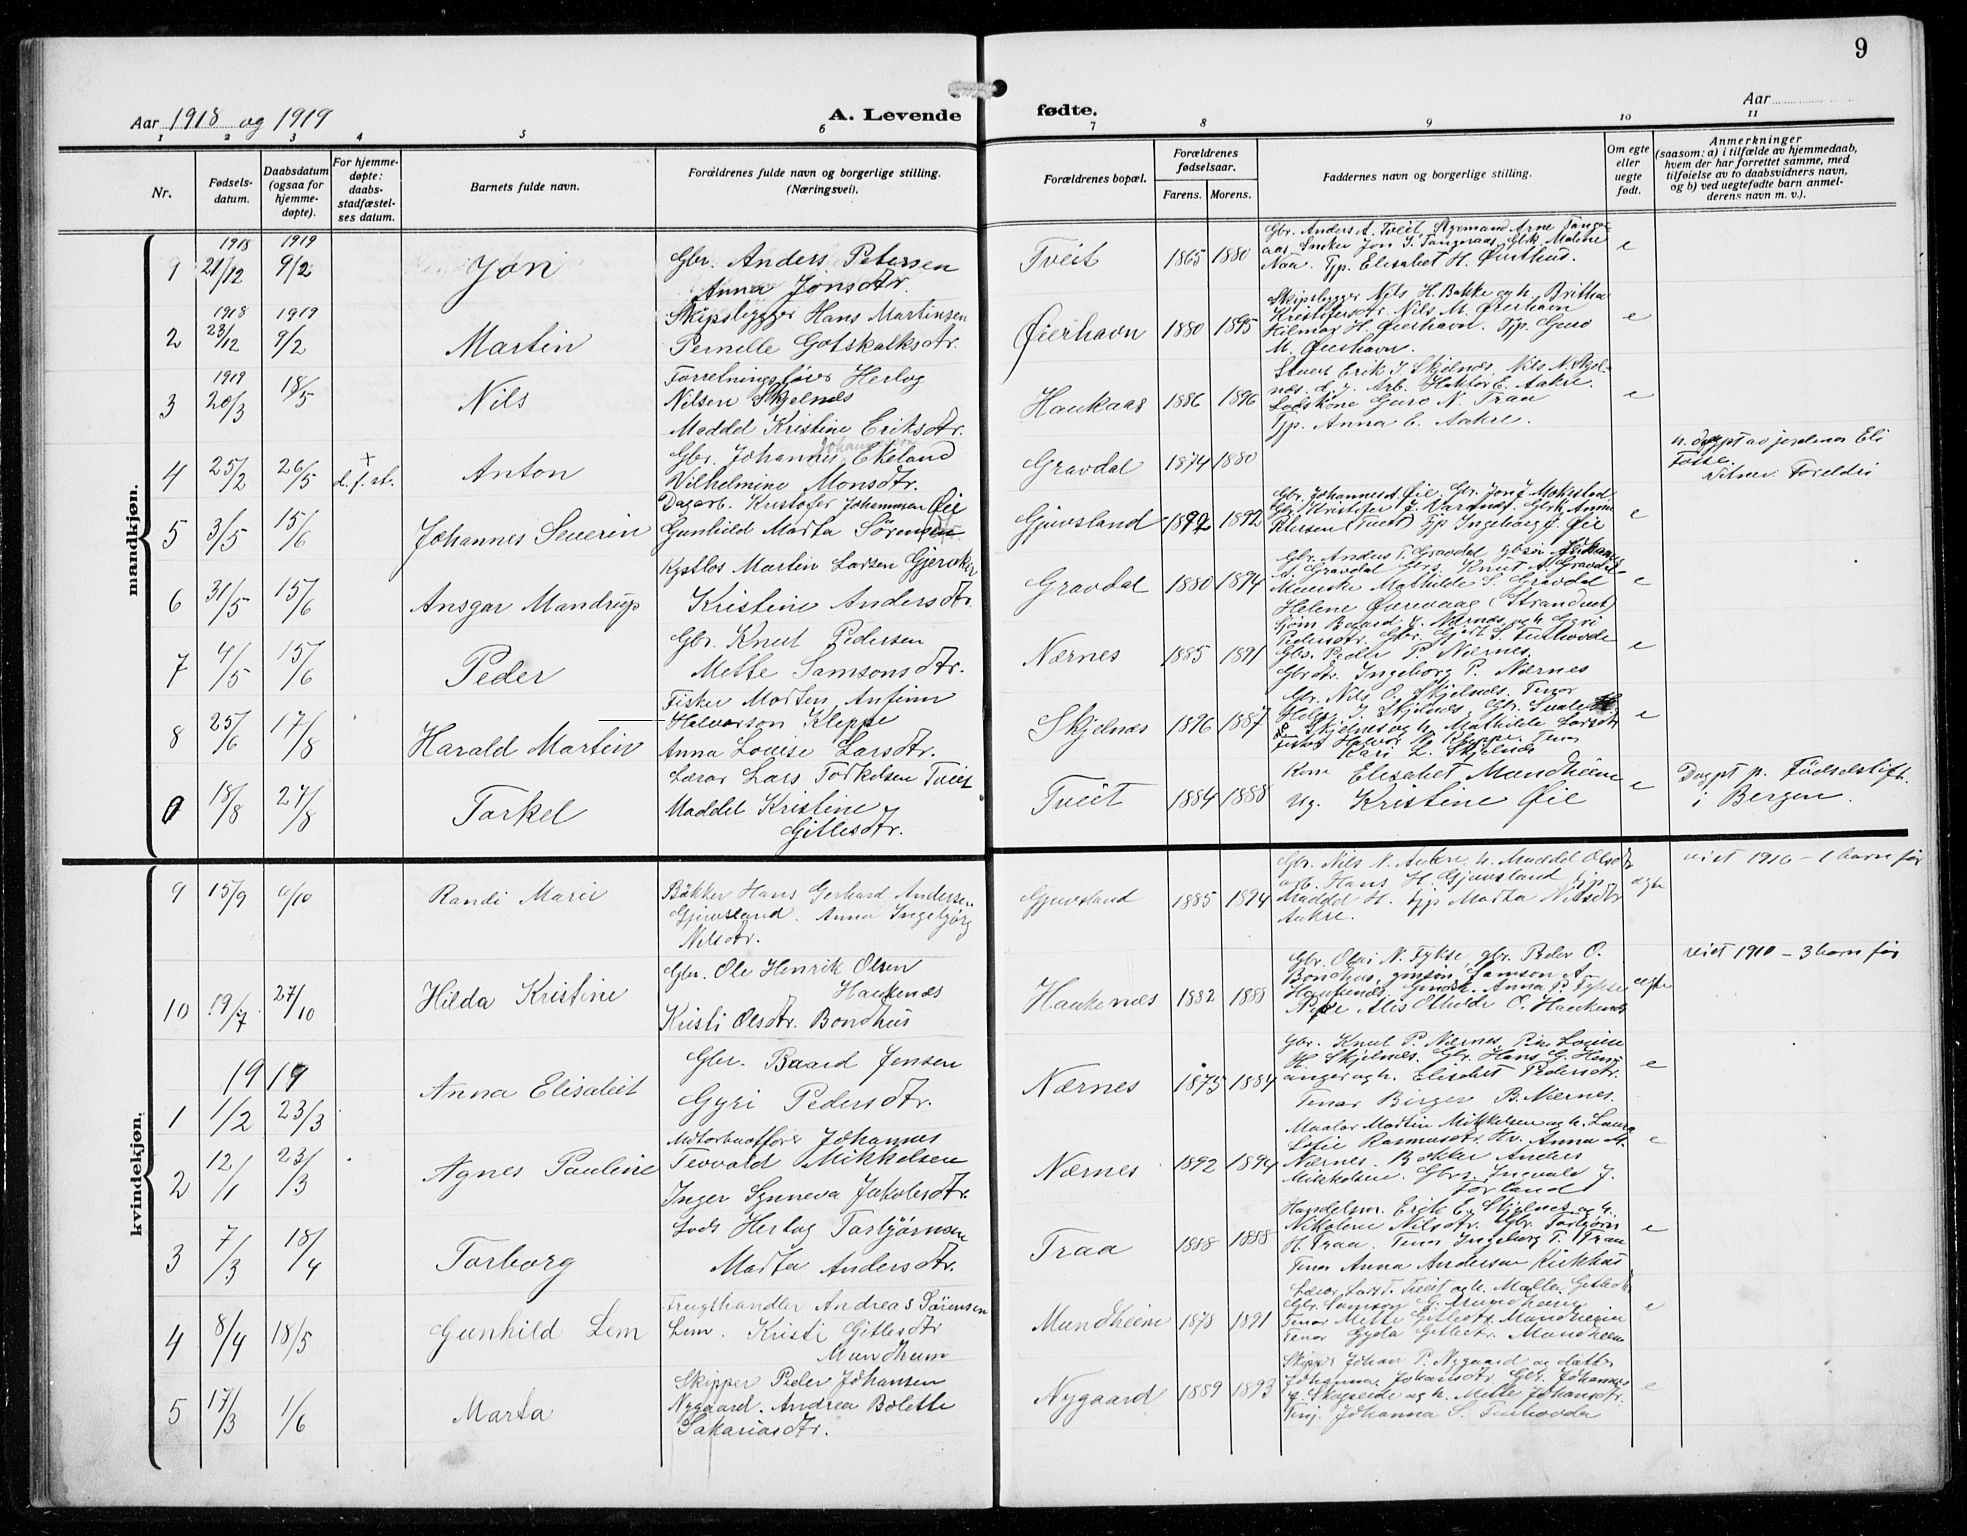 9
Aar 1918 og 1919
A. Levende
fødte.
Aar
1 2 3 4 5 6 7 8 9 10 11
Nr.
Fødsels-
datum.
Daabsdatum
(ogsaa for
hjemme-
døpte).
For hjemme-
døpte:
daabs-
stadfæstel-
ses datum.
Barnets fulde navn.
Forældrenes fulde navn og borgerlige stilling.
(Næringsvei).
Forældrenes bopæl.
Forældrenes
fødselsaar.
Farens. Morens.
Faddernes navn og borgerlige stilling.
Om egte
eller
uegte
født.
Anmerkninger
(saasom: a) i tilfælde av hjemmedaab,
hvem der har forrettet samme, med
tilføielse av to daabsvidners navn,
og b) ved uegtefødte barn anmel-
derens navn m. v.).
mandkjøn.
1 1918 21/12 1919 9/2 Jon
Gbr. Anders Petersen
Anna Jonsdtr.
Tveit 1865 1880
Gbr. Anders A. Tveit, Styrmand Arne Tange-
aas, Snekr Jon J. Tangeraas, Gbk. Malene
Naa. Tjp. Elisabet H. Øierhus.
e
2 1918 23/12 1919 9/2 Martin
Skipsbygger Hans Martinsen
Pernille Gotskalksdtr.
Øierhavn 1880 1895
Skipsbygger Nils H. Bakke og h. Britha
Kristofersdtr. Nils M. Øierhavn
Hilmar H. Øierhavn. Tjp. Guro
M. Øierhavn.
e
3 1919 20/3 18/5 Nils
Forretningsfører Herlog
Nilsen Skjelnes
Maddel Kristine Eriksdtr.
Haukaas 1886 1896
Erik J. Skjelnes, Nils N. Skjel-
nes. d. y. Arb. Haktor E. Aakre.
Lodskone Guro N. Traa
Tjp. Anna E. Aakre.
e
4 25/2 26/5 + d. f. st. Anton
Gbr. Johannes Ekeland
Vilhelmine Monsdtr.
Gravdal 1874 1880
h. døpt av jordmor Eli
Fosse.
Vitner: Foreldri
5 3/5 15/6 Johannes Severin
Dagarb. Kristofer Johannessen Øie
Gunhild Marta Sørensen
Gjuvsland 1892 1892
Gbr. Johannes Øie, Gbr. Jon J. Mokstad
Gbr. Kristofer J. Varanes. Gbrk. Anna
Petersen (Tveit) Tjp Ingeborg J. Øie
e
6 31/5 15/6 Ansgar Mandrup
Kystlos Martin Larsen Gjeraker
Kristine Andersdtr.
Gravdal 1880 1894
Gbr. Anders T. Gravdal
A. Gravdal Gbrs. Knut A. Gravdal
Mathilde S. Gravdal
Helene Øierevaag (Strandvet)
e
7 4/5 15/6 Peder
Gbr. Knut Pedersen
Mette Samsonsdtr.
Nærnes 1885 1891
Baard J. Nærnes og h. Gyri
Pedersdtr. Gbr. Gjert S. Tuehovde
Gbs. Peder P. Nærnes
Gbrdtr. Ingeborg P. Nærnes
e
8 25/6 17/8 Harald Martin
Fisker Morten Anfinn
Halvorson Kleppe
Anna Lovise Larsdtr.
Skjelnes 1896 1887
Gbr. Nils O. Skjelnes. Tenor
Skjelnes og h. Mathilde Larsdtr
Fisker Halvor M. Kleppe. Tenor
Kari L. Skjelnes
e
18/8 27/8 Torkel
Lærar Lars Torkelsen Tveit
Maddel Kristine
Gitlesdtr.
Tveit 1884 1888
Kone Elisabet Mundheim
Ug. Kristine Øie
e
Døypt p. Fødselstift.
i Bergen.
kvindekjøn.
9 15/9 6/10 Randi Marie
Bakker Hans Gerhard Andersen
Gjuvsland. Anna Ingebjørg
Nilsdtr.
Gjuvsland 1885 1894
Gbr. Nils N. Aakre, h. Maddel Olsdtr
arb. Hans H. Gjuvsland tjp
Maddel H. tjp Marta Nilsdtr
Aakre.
egte
viet 1916 - 1 barn før
10 19/7 27/10 Hilda Kristine
Gbr. Ole Henrik Olsen
Haukenæs
Kristi Olsdtr. Bondhus
Haukenæs 1882 1888
Gbr. Olai N. Fykse, gbr. Peder O.
Bondhus, Samson A.
Haukenæs. Anna P. Fykse
Alis Othilde O. Haukenæs
egte
viet 1910 - 3 barn før
1919
1 1/2 23/3 Anna Elisabet
Gbr. Baard Jensen
Gyri Pedersdtr.
Nærnes 1875 1884
Gbr. Knut P. Nærnes, Lovise
H. Skjelnes. Gbr. Hans G. Hav-
anger og h. Elisabet Pedersdtr.
Tenor Birger B. Nærnes.
e
2 12/1 23/3 Agnes Pauline
Motorbaatfører Johannes
Teovald Mikkelsen
Inger Synneva Jakobsdtr.
Nærnes 1892 1894
Maalar Martin Mikkelsen og h. Laura
Sofie Rasmusdtr. Hv. Anna M.
Nærnes. Bakker Anders
Mikkelsen. Gbrs. Ingvald J.
Førland
e
3 7/3 18/4 Torborg
Lods Herlog Torbjørnsen
Marta Andersdtr.
Traa 1888 1888
Handelsm. Erik E. Skjelnes og h.
Nikoline Nilsdtr. Gbr. Torbjørn
H. Traa. Tenor Ingeborg T. Traa
Tenor Anna Andersen Kirkhus
e
4 8/4 18/5 Gunhild Lem
Frugthandler Andreas Sørensen
Lem. Kristi Gitlesdtr
Mundheim
Mundheim 1878 1891
Lærar Lars T. Tveit og h. Malle Gitlesdtr
Gbr. Samson G. Mundheim
Tenor Mette Gitlesdtr. Mundheim
Tenor Gyda Gitlesdtr. Mundheim
e
5 17/3 1/6 Marta
Skipper Peder Johansen
Nygaard. Andrea Bolette
Sakariasdtr.
Nygaard 1889 1893
Skipper Johan P. Nygaard og datter
Johanna Johansdtr, Gbr. Johannes
Skogseide og h. Mette Johansdtr.
Johanna S. Tuehovde
e